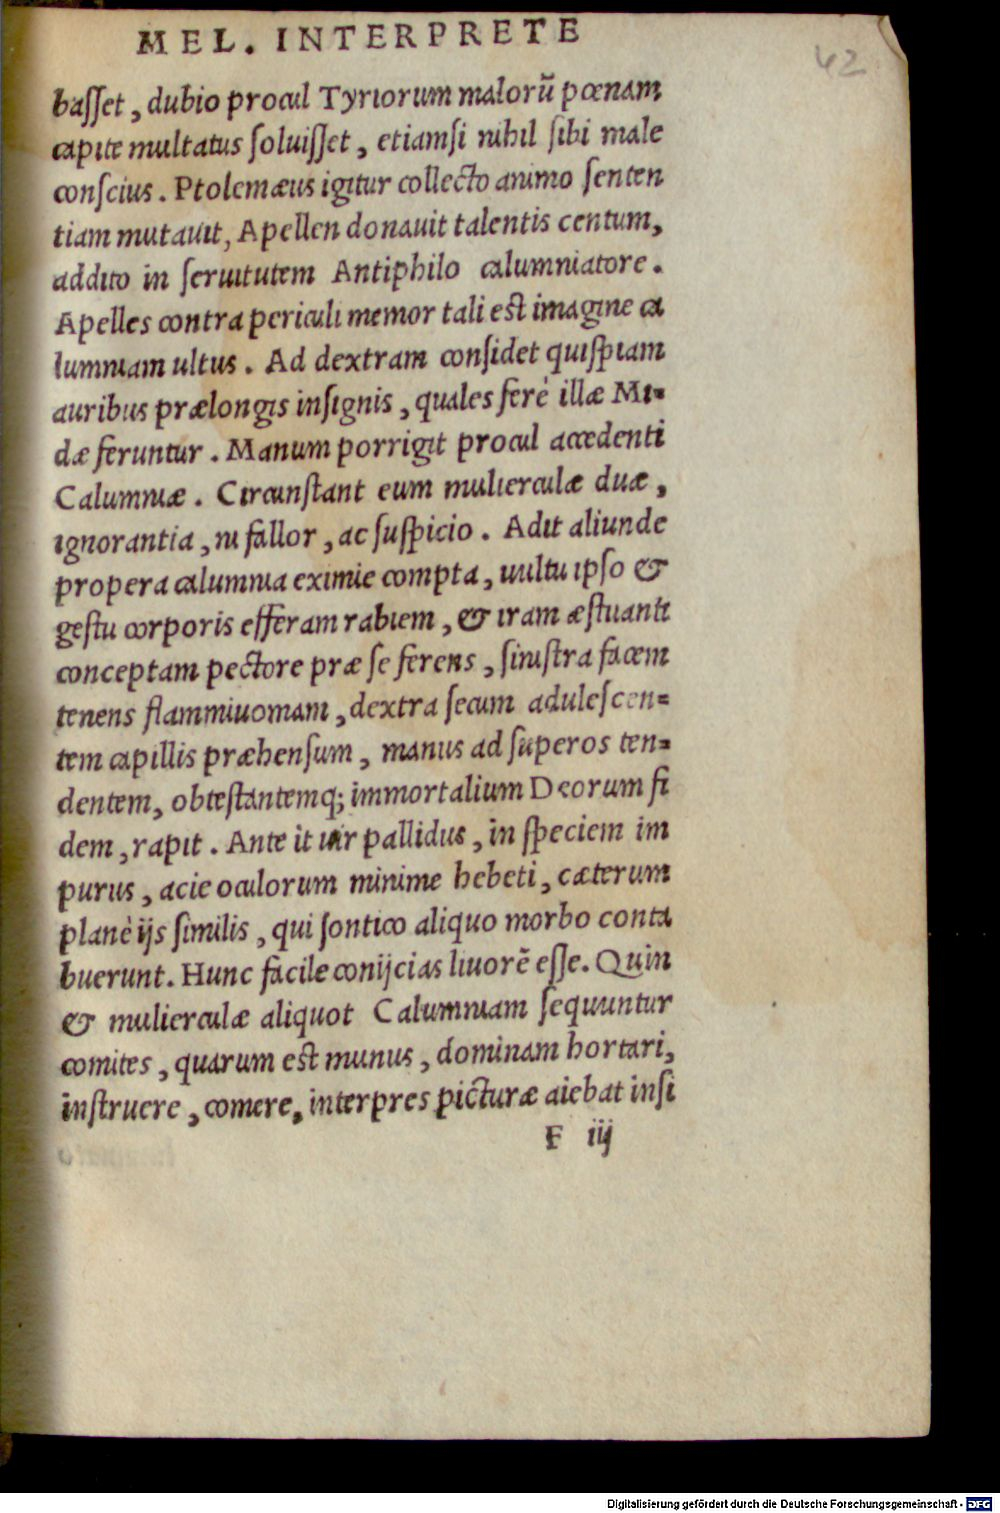 MEL. INTERPRETE
42
basſet, dubio procul Tyriorum malorũ pœnam
capite multatus ſoluiſſet, etiamſi nihil ſibi male
conſcius. Ptolemæus igitur collecto animo ſenten
tiam mutauit, Apellen donauit talentis centum,
addito in ſeruitutem Antiphilo calumniatore.
Apelles contra periculi memor tali eſt imagine ca
lumniam ultus. Ad dextram conſidet quiſpiam
auribus prælongis inſignis, quales ferè illæ Mi-
dæ feruntur. Manum porrigit procul accedenti
Calumniæ. Circunſtant eum mulierculæ duæ,
ignorantia, ni fallor, ac ſuſpicio. Adit aliunde
propera calumnia eximie compta, uultu ipſo &
geſtu corporis efferam rabiem, & iram æſtuanti
conceptam pectore præ ſe ferens, ſiniſtra facem
tenens flammiuomam, dextra ſecum aduleſcen=
tem capillis præhenſum, manus ad ſuperos ten=
dentem, obteſtantemq; immortalium Deorum fi
dem, rapit. Ante it uir pallidus, in ſpeciem im
purus, acie oculorum minime hebeti, cæterum
planè ijs ſimilis, qui ſontico aliquo morbo conta
buerunt. Hunc facile conijcias liuorẽ eſſe. Quin
& mulierculæ aliquot Calumniam ſequuntur
comites, quarum eſt munus, dominam hortari,
inſtruere, comere, interpres picturæ aiebat inſi
F iij
Digitalisierung gefördert durch die Deutsche Forschungsgemeinschaft - DFG